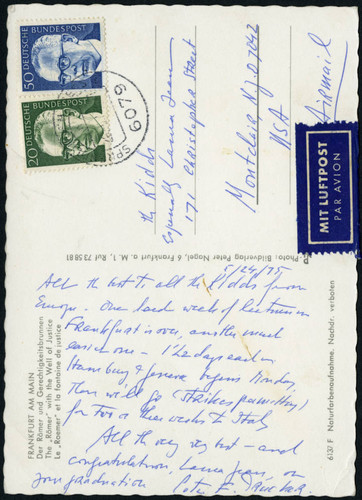 50 DEUTSCHE BUNDESPOST
20 DEUTSCHE BUNDESPOST
6079
Airmail
MIT LUFTPOST
PAR AVION
the Kidds
especially Laura Jean
171 Christopher Street
Montclair N.J. 07042
USA
Photo: Bildverlag Peter Nagel, 6 Frankfurt a. M. 1, Ruf 73 58 81
FRANKFURT AM MAIN
Der Römer und Gerechtigkeitsbrunnen
The „Römer" with the Well of Justice
Le „Roemer" et la fontaine de justice
5/29/75
All the best to all the Kidds from
Europe. One hard week of lectures in
Frankfurt is over, another much
easier one – 1½ days each in
Hamburg & begins Monday,
Then will go (strikes permitting)
for two or three weeks to Italy
All the very very best – and
congratulations, Laura Jean, on
your graduation
6137 F Naturfarbenaufnahme. Nachdr. verboten